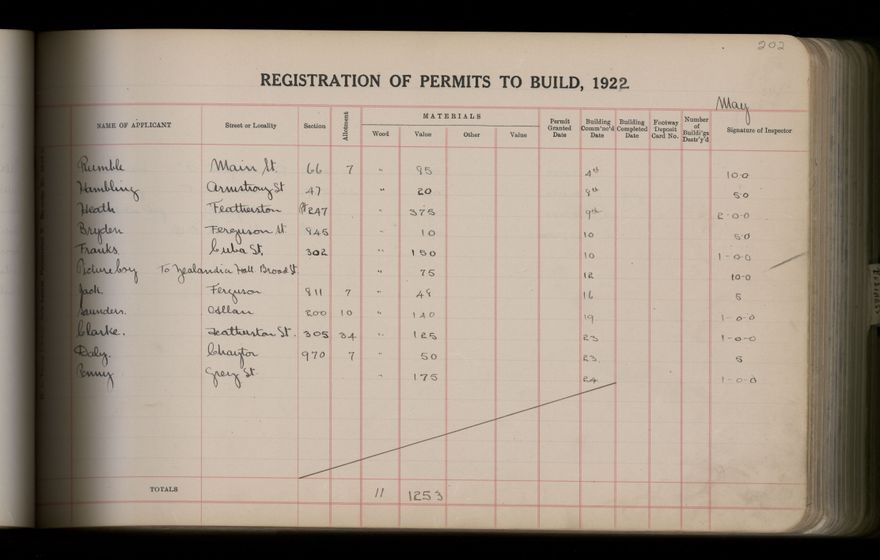 202
REGISTRATION OF PERMITS TO BUILD, 1922
May
NAME OF APPLICANT Street or Locality Section Allotment MATERIALS Wood Value Other Value Permit Granted Date Building Comm'nc'd Date Building Completed Date Footway Deposit Card No. Number of Buildi'gs Destr'y'd Signature of Inspector
Rumble Main St. 66 7 " 95 4th 10.0
Hambling Armstrong St 47 " 20 8th 5.0
Heath Featherston 247 " 375 9th 2-0-0
Bryden Ferguson St. 845 " 10 10 5.0
Franks Cuba St. 302 " 150 10 1-0-0
To Zealandia Hall Broad St " 75 12 10-0
Jack. Ferguson 811 7 " 48 16 5
Saunders. 200 10 " 140 19 1-0-0
Clarke. Featherston St. 305 34 " 125 23 1-0-0
Daly. Chaytor 970 7 " 50 23. 5
Penny Grey St. " 175 24 1-0-0
TOTALS 11 1253